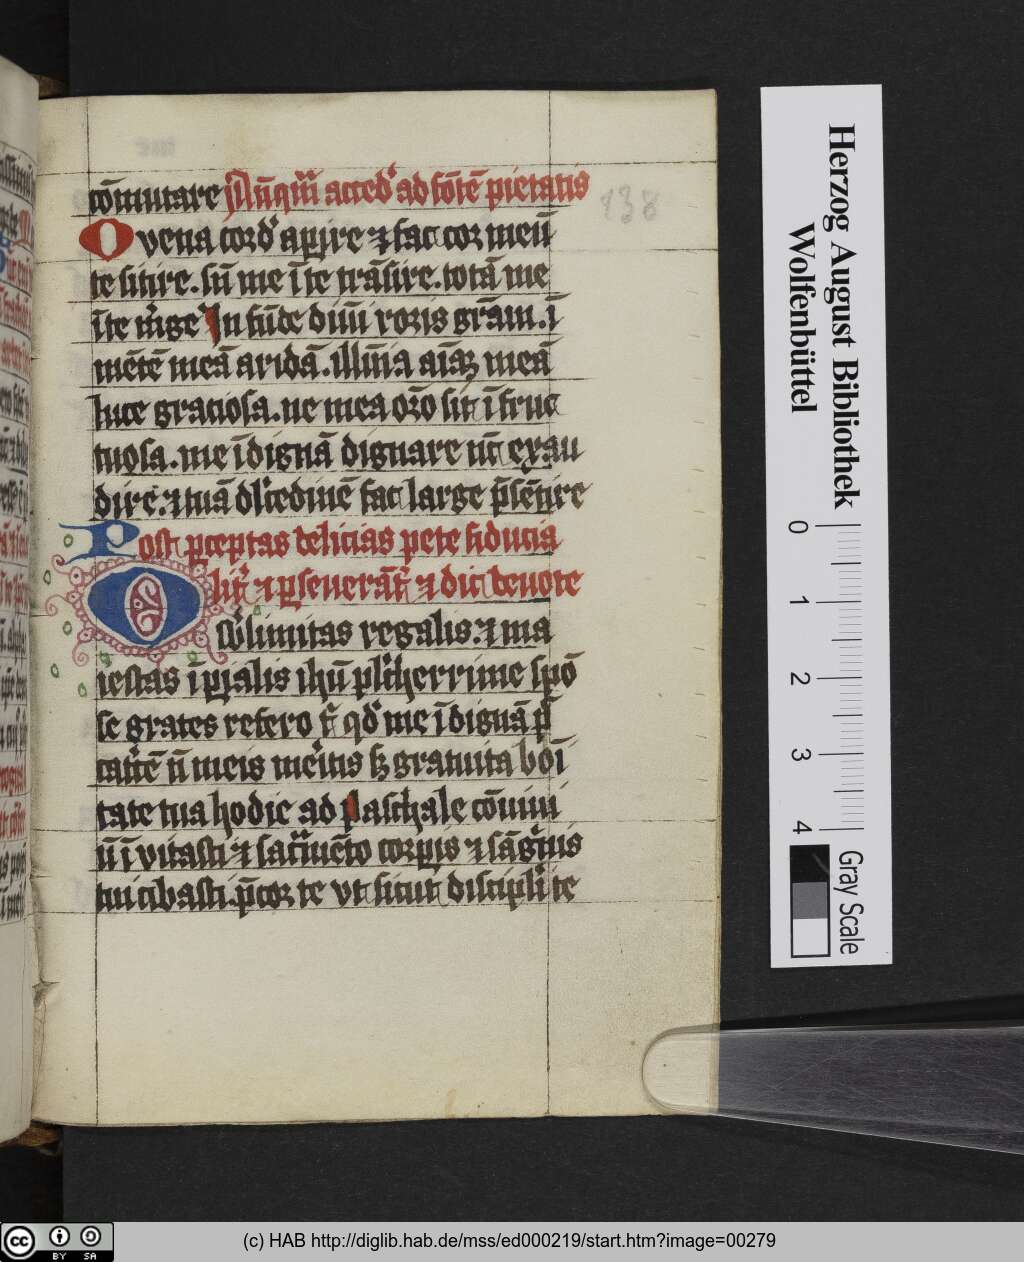 cōmutare Nūqm̄ acced' ad fōtē pietatis
138
O vena cord' aperire ⁊ fac cor meū
te sitire. sn̄ me ī te trāsire. totā me
ī te m'ge In fūde diuī roris grām. ī
mētē meā aridā. illīa aīaʒ meā
luce graciosa. ne mea or̄o sit ī fruc
tuosa. me īdignā dignare nūc exau
dire. ⁊ tuā dl'cedinē fac large p̄sētire
Post p̄ceptas delicias pete fiducia
lit' ⁊ p̱seuerāt' ⁊ dic deuote
O Sb'limitas regalis. ⁊ ma
iestas īp̱ialis ihū pl'cherrime spō
se grates refero t' qd' me īdignā p̄c
catricē n̄ meis meritis sʒ gratuita boī
tate tua hodie ad paschale cōuiui
ū ī vitasti ⁊ sac'mēto corp̱is ⁊ sāg'uis
tui cibasti. p̄cor te vt sicut discipl'i te
Herzog August Bibliothek
Wolfenbüttel
0 1 2 3 4
Gray Scale
cc BY SA
(c) HAB http://diglib.hab.de/mss/ed000219/start.htm?image=00279